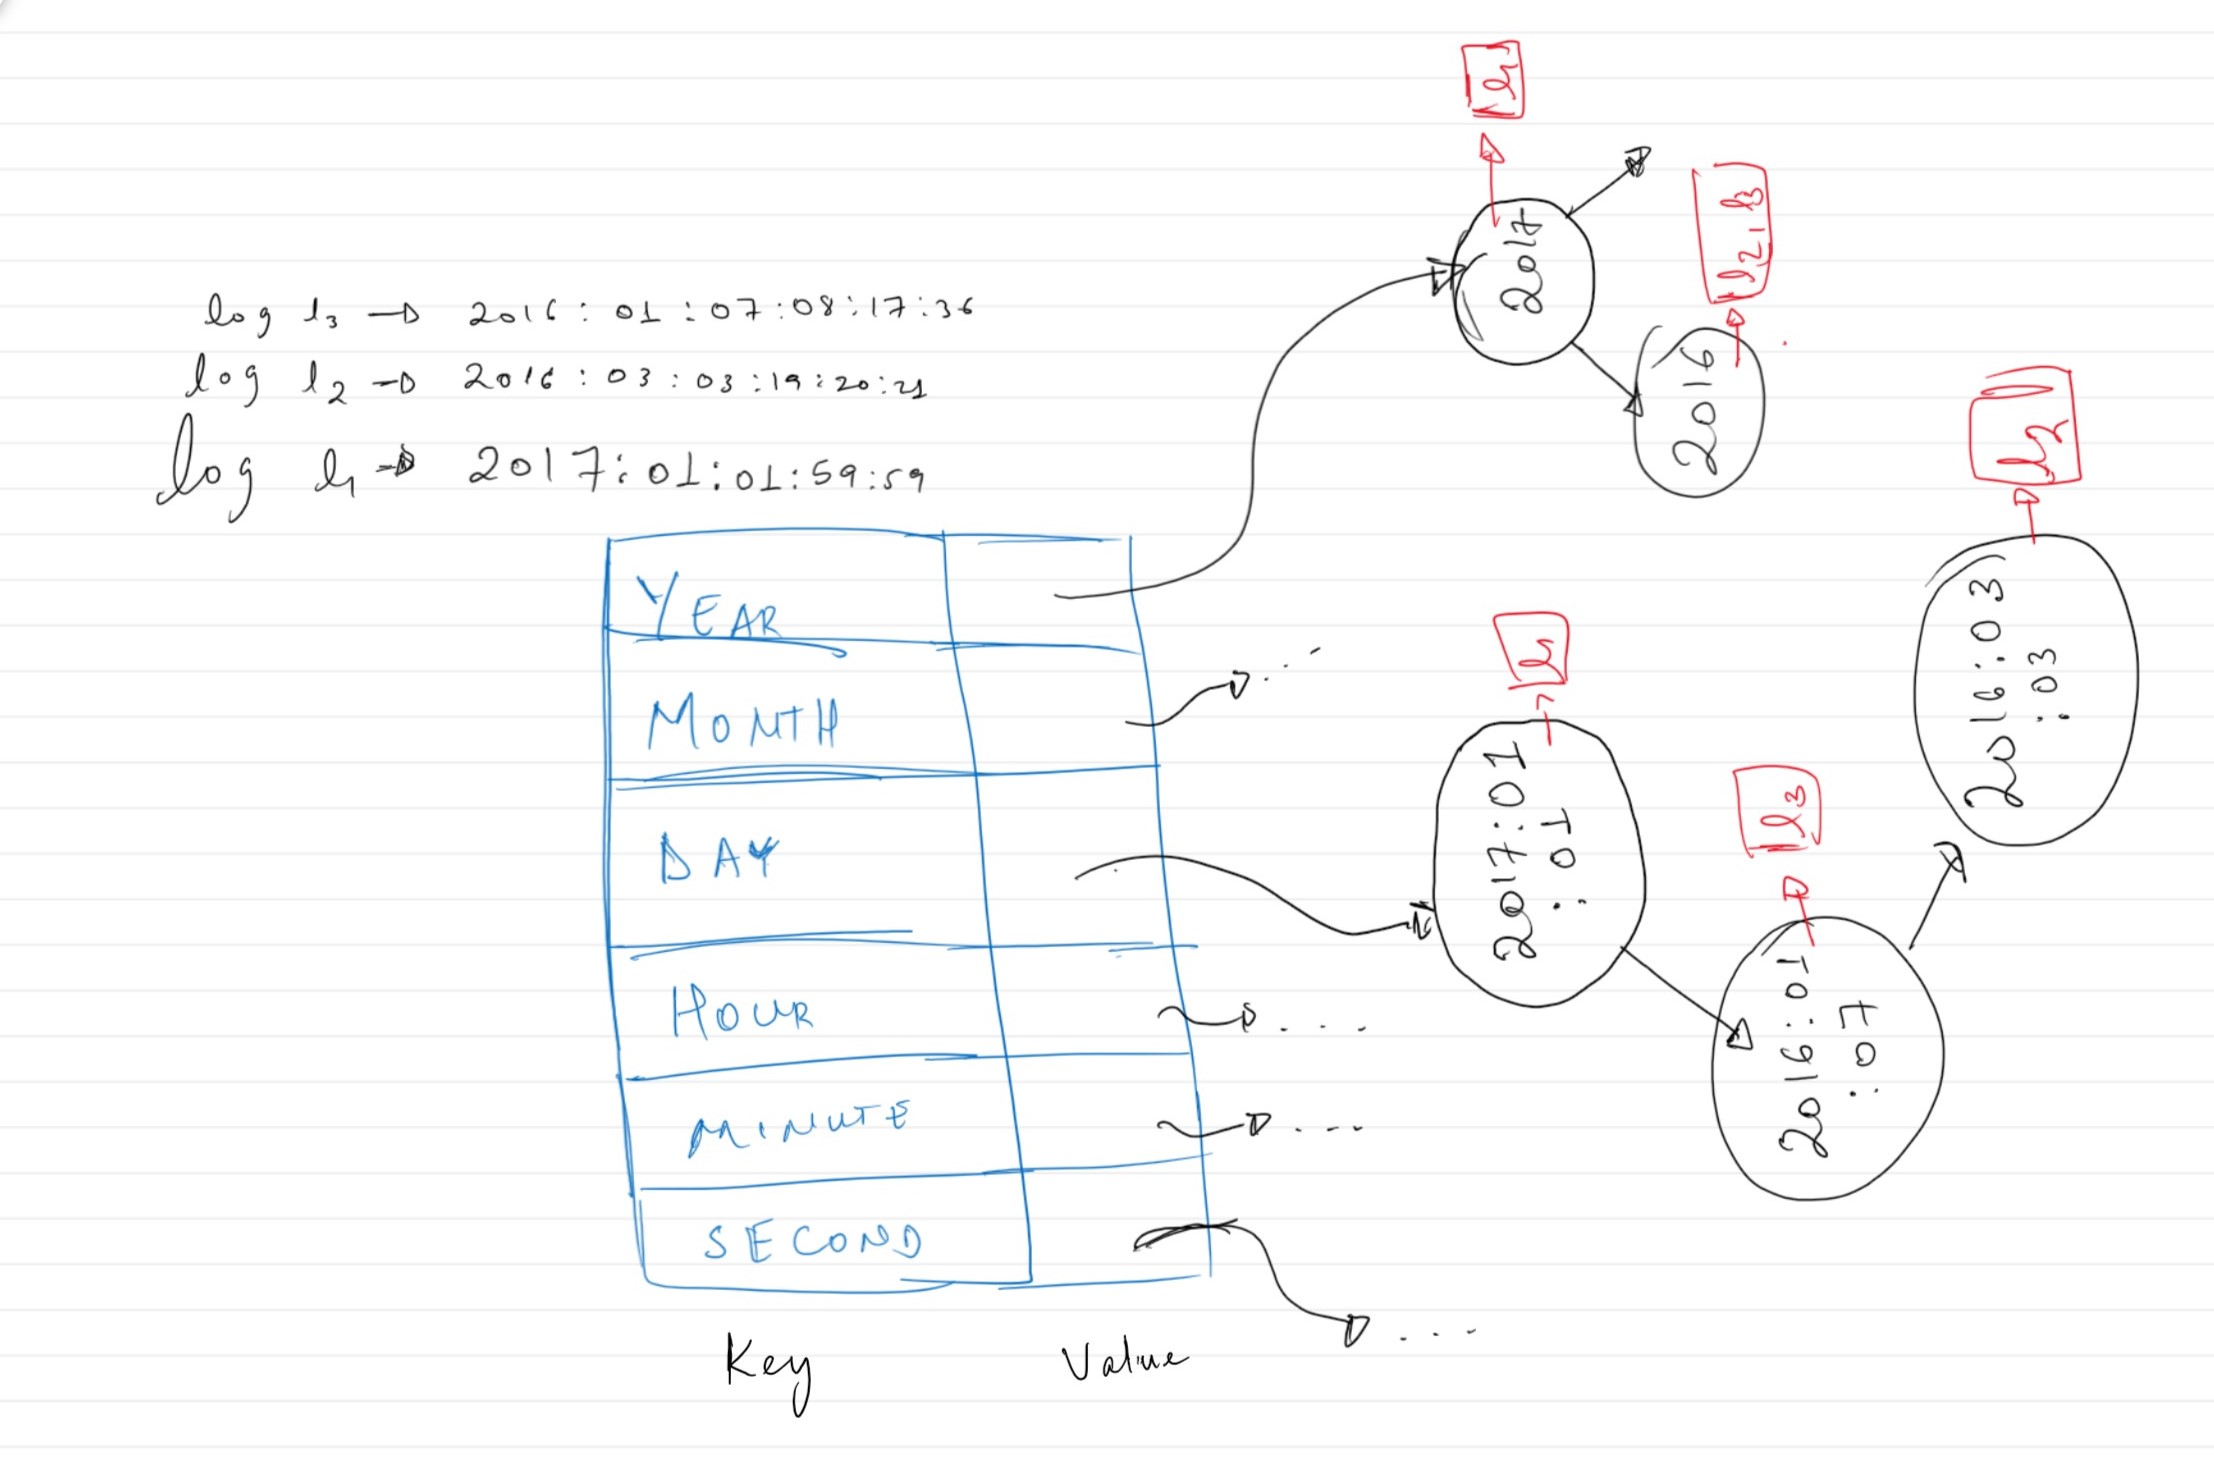 log l3 → 2016:01:07:08:17:36
log l2 → 2016:03:03:19:20:21
log l1 → 2017:01:01:59:59
YEAR
MONTH
DAY
HOUR
MINUTE
SECOND
Key Value
l1
2017
l2, l3
2016
l1
2017:01
:01
l3
2016:01
:07
l2
2016:03
:03